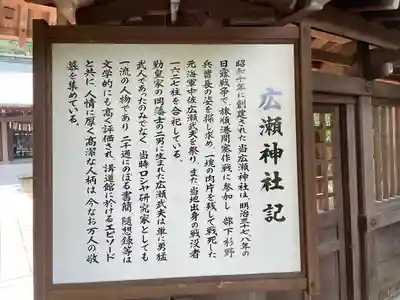 広瀬神社記
昭和十年に創建された当広瀬神社は、明治三十七八年の
日露戦争で、旅順港閉塞作戦に参加し 部下杉野
兵曹長の姿を探し求め、一塊の肉片を残して戦死した
元海軍中佐広瀬武夫を祭り、また当地出身の戦没者
一六二七柱を合祀している。
勤皇家の岡藩士の二男に生まれた広瀬武夫は、単に勇猛
武人であったのみでなく 当時ロシヤ研究家としても
一流の人物であり 二千通にのぼる書簡、随想録等は
文学的にも高く評価され、講道館に於けるエピソード
と共に、人情に厚く高潔な人柄は今なお万人の敬
慕を集めている。